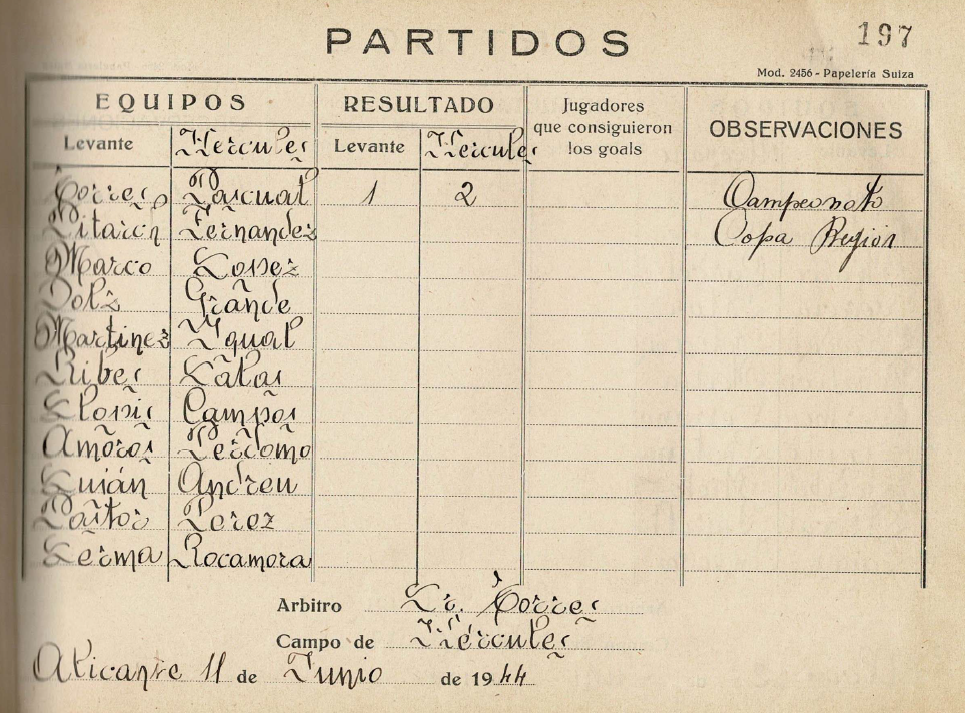 PARTIDOS 197
Mod. 2456 - Papelería Suiza
EQUIPOS RESULTADO Jugadores que consiguieron los goals OBSERVACIONES
Levante Hercules Levante Hercules
Torres Pascual 1 2 Campeonato
Pitarch Fernandez Copa Region
Marco Lopez
Dolz Grande
Martinez Igual
Ribes Salas
Llopis Campos
Amoros Perdomo
Luján Andreu
Pastor Perez
Lerma Rocamora
Arbitro Sr. Torres
Campo de Hércules
Alicante 11 de Junio de 1944